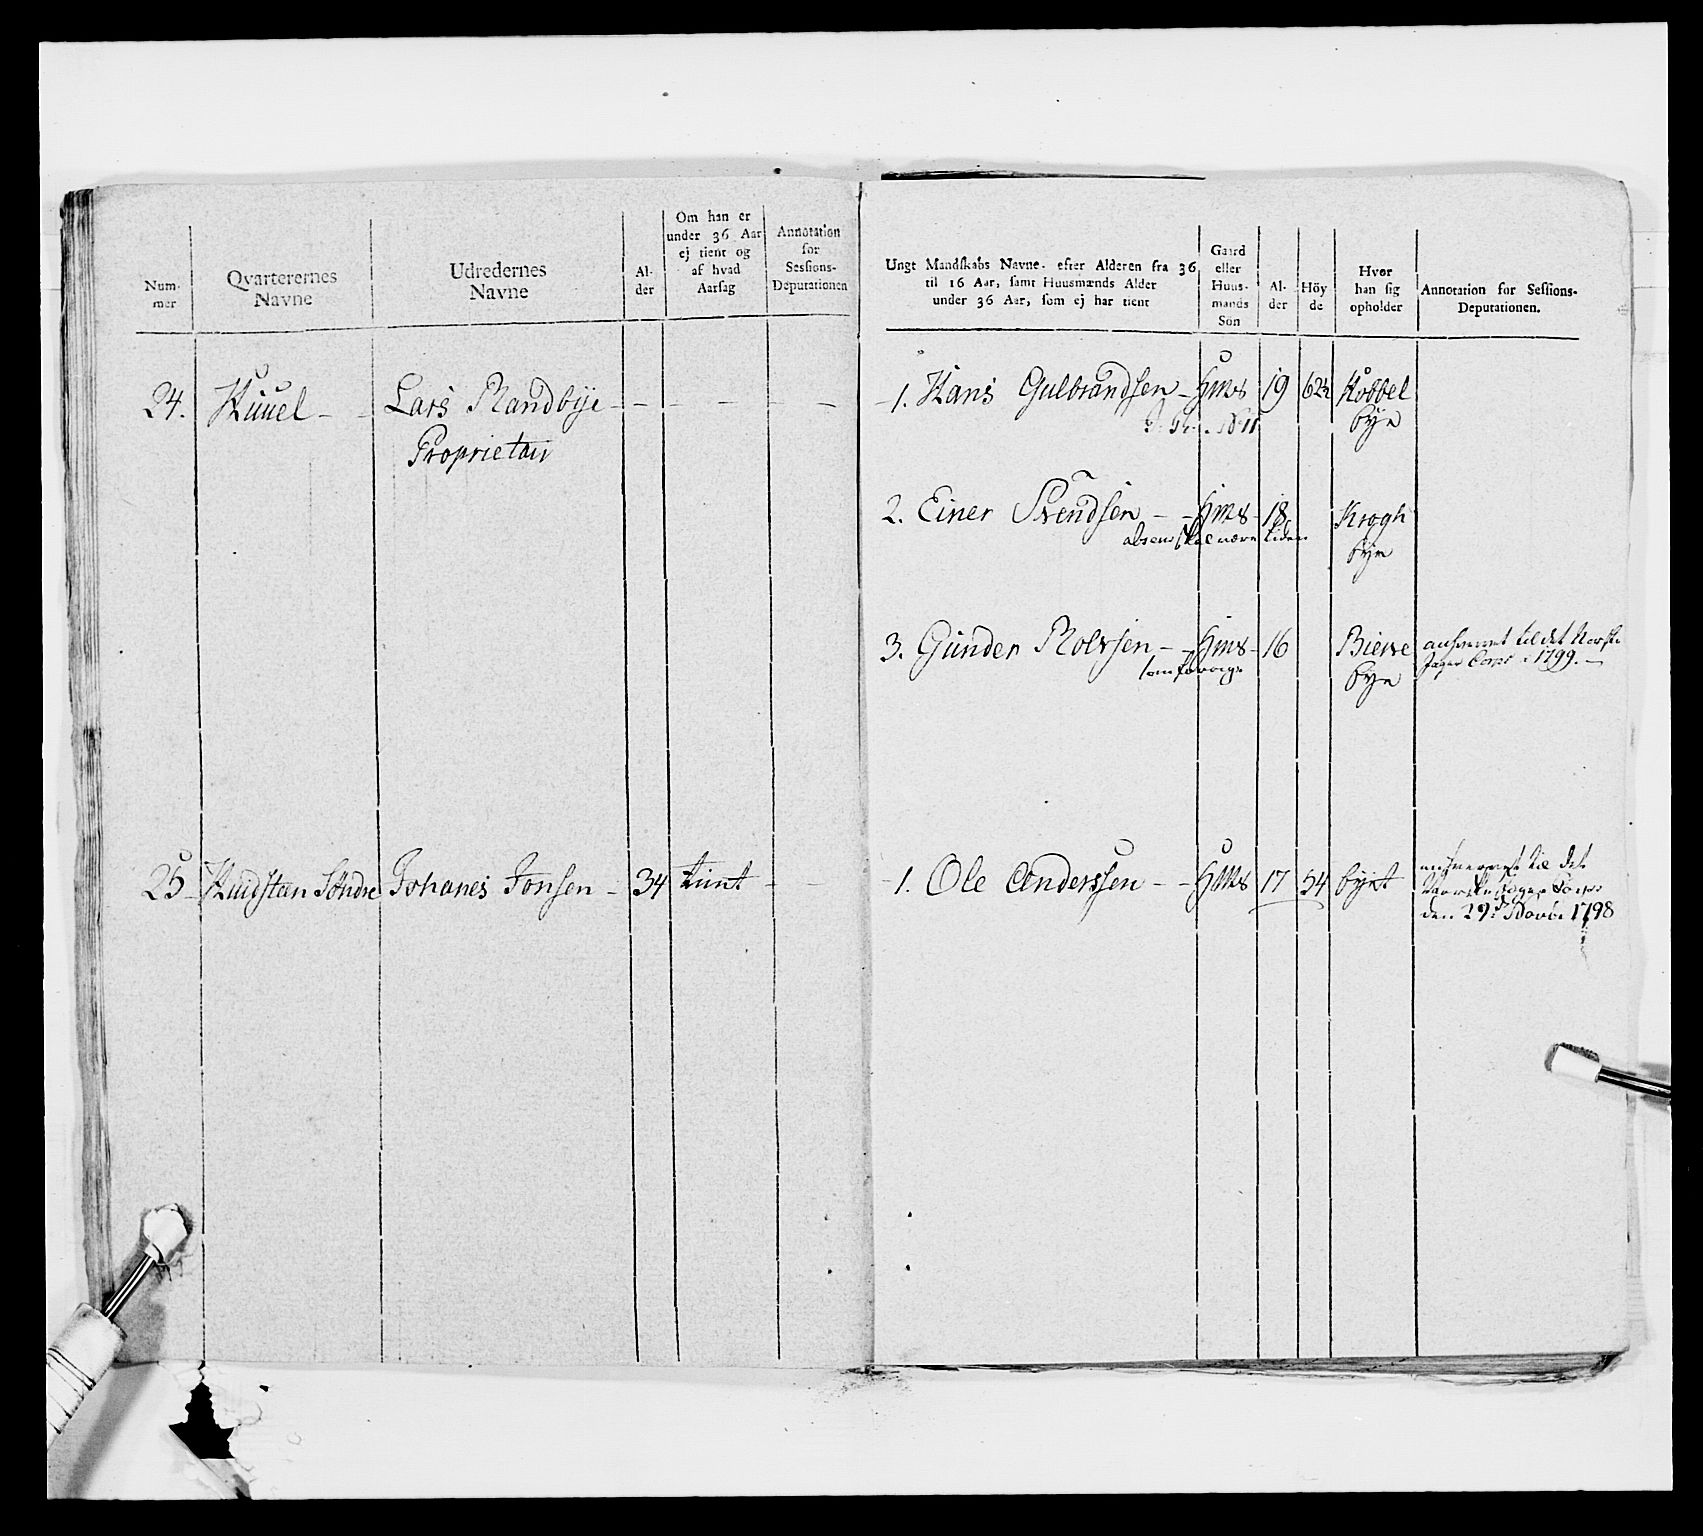 Num-
mer
Qvarterernes
Navne
Udredernes
Navne
Al-
der
Om han er
under 36 Aar
ej tient og
af hvad
Aarsag
Annotation
for
Sessions-
Deputationen
24. Kuuel - - Lars Randbye - - - - -
Proprietair
25 Kuistan Söndre Johanes Jonsen - 34 tient - -
Ungt Mandskabs Navne, efter Alderen fra 36
til 16 Aar, samt Huusmænds Alder
under 36 Aar, som ej har tient
Gaard
eller
Huus-
mands
Sön
Al-
der
Höy
de
Hvor
han sig
opholder
Annotation for Sessions-
Deputationen.
1. Hans Gulbrandsen - Hms 19 62½ Kobbel
bye
2. Einer Svendsen - - Hms - 18 Krogh
bye
3. Gunder Rolvsen - - Hms - 16 Bierre
bye
som forrige
til det Norske
Jæger Corps 1799. -
1. Ole Anderssen - - Hms 17 54 byet
til det
Norske Jæger Corps
den 29d Novbr 1798